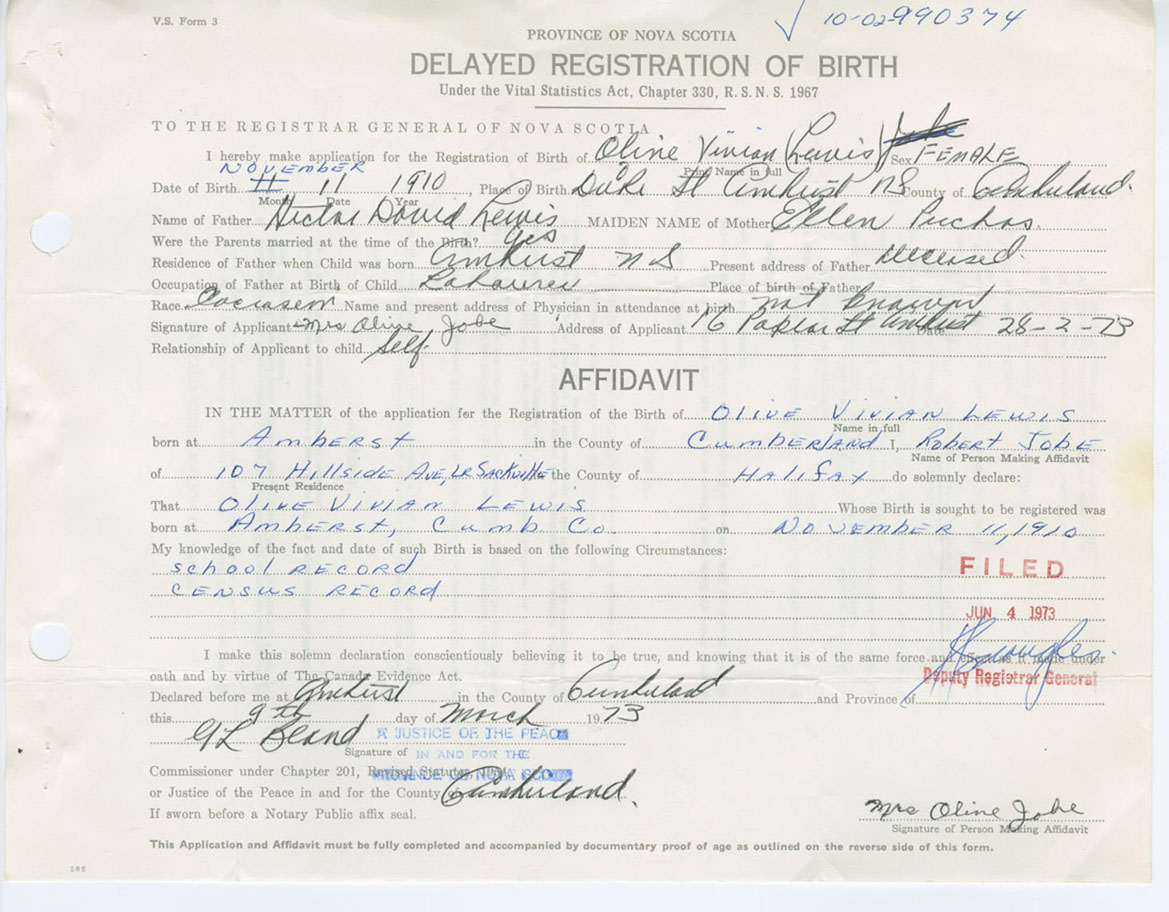 V.S. Form 3
✓ 10-02-990374
PROVINCE OF NOVA SCOTIA
DELAYED REGISTRATION OF BIRTH
Under the Vital Statistics Act, Chapter 330, R. S. N. S. 1967
TO THE REGISTRAR GENERAL OF NOVA SCOTIA
I hereby make application for the Registration of Birth of Olive Vivian (Lewis) Sex FEMALE
Print Name in full
NOVEMBER
Date of Birth 11 11 1910, Place of Birth St Amherst NS County of Cumberland.
Month Date Year
Name of Father Hector David Lewis MAIDEN NAME of Mother Ellen
Were the Parents married at the time of the Birth? yes
Residence of Father when Child was born Amherst NS Present address of Father deceased.
Occupation of Father at Birth of Child Place of birth of Father
Race Name and present address of Physician in attendance at birth not
Signature of Applicant Mrs Olive Jobe Address of Applicant 16 Poplar St Amherst Date 28-2-73
Relationship of Applicant to child Self
AFFIDAVIT
IN THE MATTER of the application for the Registration of the Birth of OLIVE VIVIAN LEWIS
Name in full
born at Amherst in the County of CUMBERLAND I, ROBERT JOBE
Name of Person Making Affidavit
of 107 Hillside Ave, LR SACKVILLE the County of HALIFAX do solemnly declare:
Present Residence
That OLIVE VIVIAN LEWIS Whose Birth is sought to be registered was
born at Amherst, Cumb Co. on NOVEMBER 11, 1910
My knowledge of the fact and date of such Birth is based on the following Circumstances:
SCHOOL RECORD
CENSUS RECORD
FILED
JUN 4 1973
I make this solemn declaration conscientiously believing it to be true, and knowing that it is of the same force and effect as if made under
oath and by virtue of The Canada Evidence Act.
Deputy Registrar General
Declared before me at Amherst in the County of Cumberland and Province of
this 9th day of March 1973
A JUSTICE OF THE PEACE
Signature of IN AND FOR THE
Commissioner under Chapter 201, Revised Statutes, PROVINCE OF NOVA SCOTIA
or Justice of the Peace in and for the County of Cumberland.
If sworn before a Notary Public affix seal.
Mrs Olive Jobe
Signature of Person Making Affidavit
This Application and Affidavit must be fully completed and accompanied by documentary proof of age as outlined on the reverse side of this form.